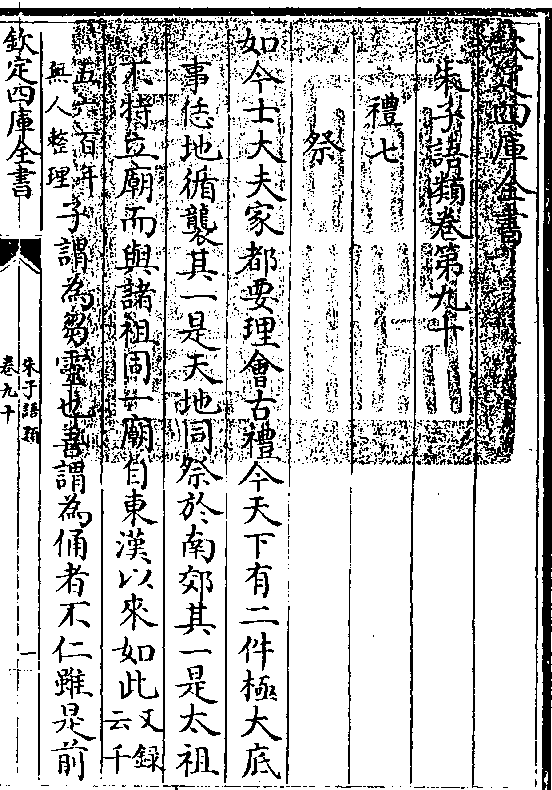 欽定四庫全書
朱子語類卷第九十
禮七
祭
如今士大夫家都要理會古禮今天下有二件極大底
事恁地循襲其一是天地同祭於南郊其一是太祖
不特立廟而與諸祖同一廟自東漢以來如此又錄云千
五六百年無人整理子謂為芻靈也善謂為俑者不仁雖是前
欽定四庫全書
朱子語類
卷九十
一